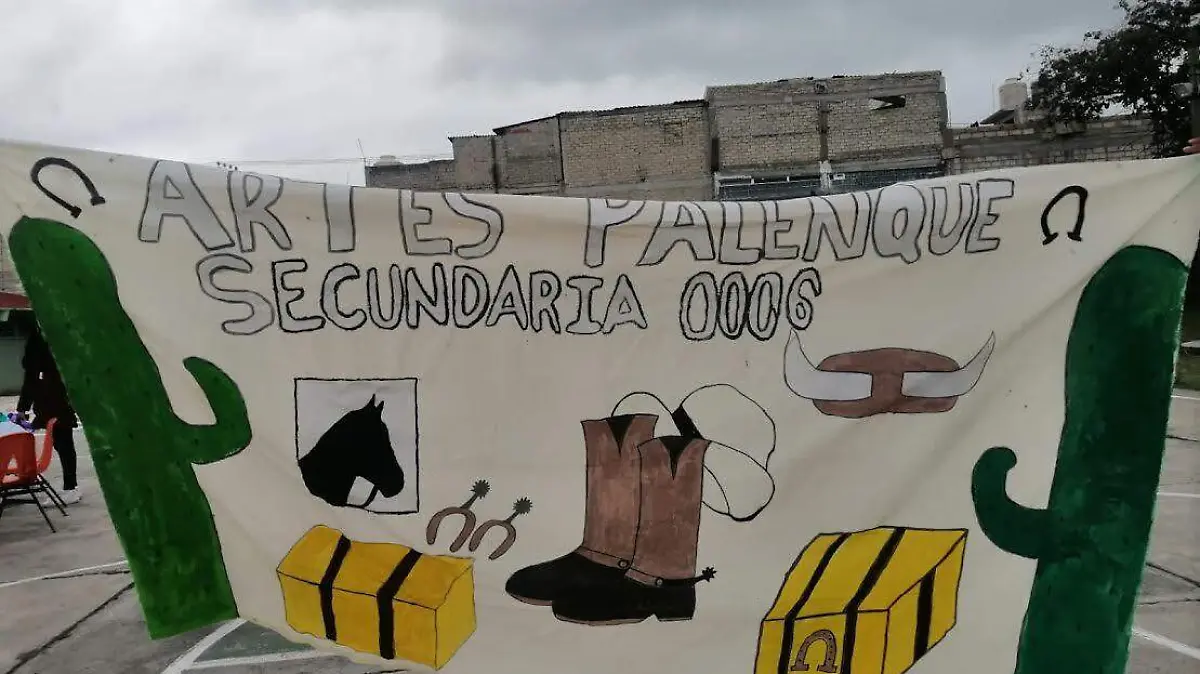 ARTES PALENQUE
SECUNDARIA 0006